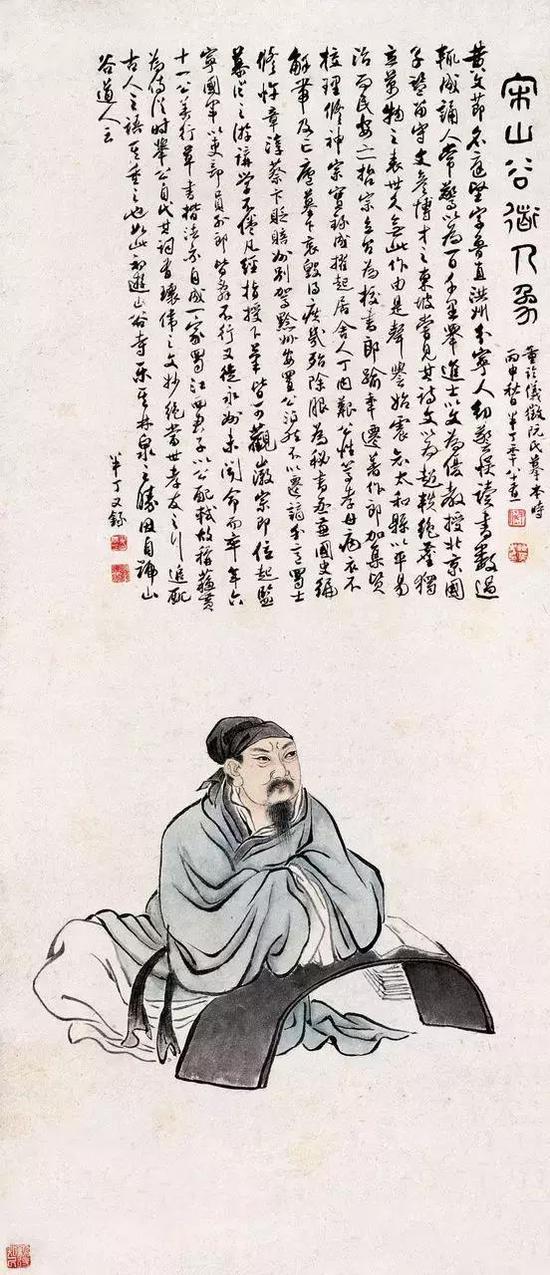 宋山谷道人象
儀徵阮氏摹本時
丙申秋半丁年八十
黄文節名庭堅字魯直洪州分寧人幼警悟讀書數過
輒成誦人常驚以為一日千里舉進士以文為優教授北京國
子監留守文彦博才之東坡嘗見其詩文以為超軼絶塵獨
立萬物之表世久無此作由是聲譽始震知太和縣以平易
治而民安之哲宗立召為校書郎踰年遷著作郎加集賢
校理修神宗實録成擢起居舍人丁母艱公性篤孝母病衣不
解帶及亡廬墓下哀毁得疾幾殆除服為秘書丞兼國史編
修忤章淳蔡卞貶涪州別駕黔州安置公泊然不以遷謫介意蜀士
慕從之游講學不倦凡經指授下筆皆可觀徽宗即位起監
寧國軍以吏部員外郎皆辭不行又徙永州未聞命而卒年六
十一公善行草書楷法亦自成一家蜀江西君子以公配軾故稱蘇黄
為侍從時舉公自代其詞有瓌偉之文妙絶當世孝友之行追配
古人之語其重之也如此初遊山谷寺樂其林泉之勝因自號山
谷道人云
半丁又録